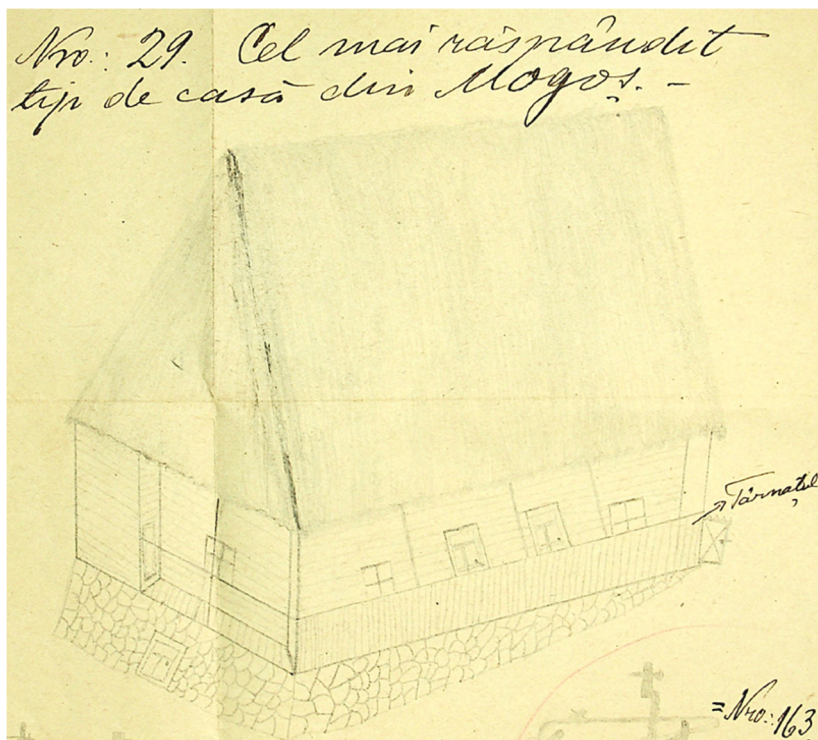 Nro.: 29. Cel mai răspândit
tip de casă din Mogoș. -
Târnațul
= Nro.: 163